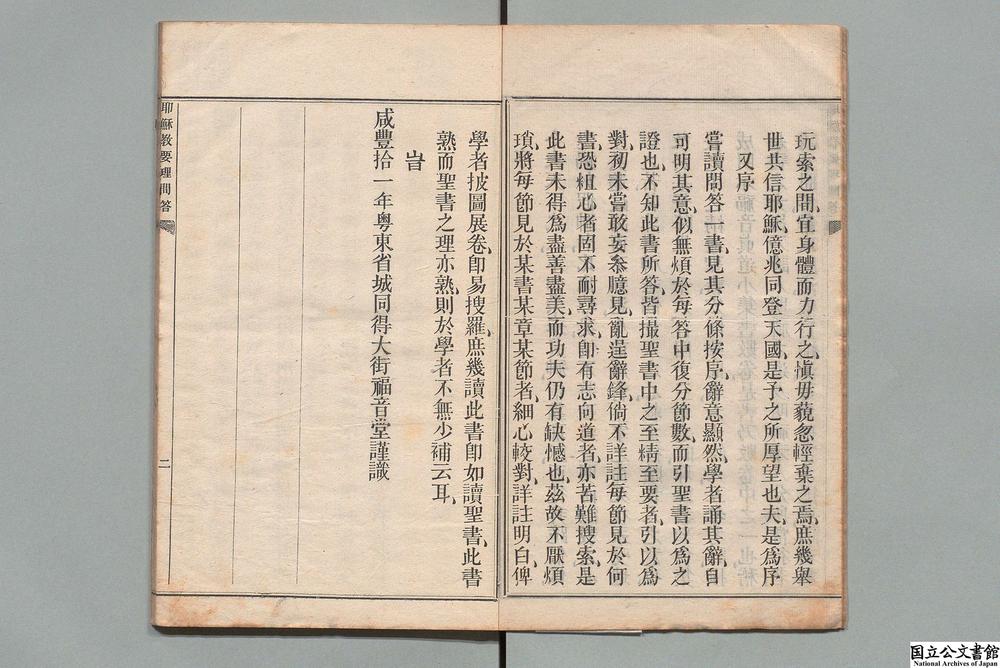 玩索之間、宜身體而力行之、愼毋藐忽輕棄之焉、庶幾舉
世共信耶穌、億兆同登天國、是予之所厚望也夫、是爲序
又序
嘗讀問答一書、見其分條按序、辭意顯然、學者誦其辭、自
可明其意、似無煩於每答中復分節數、而引聖書以爲之
證也、不知此書所答、皆撮聖書中之至精至要者、引以爲
對、初未嘗敢妄叅臆見、亂逞辭鋒、倘不詳註每節見於何
書、恐粗心者固不耐尋求、卽有志向道者、亦苦難搜索、是
此書未得爲盡善盡美、而功夫仍有缺憾也、茲故不厭煩
瑣、將每節見於某書某章某節者、細心較對、詳註明白、俾
學者披圖展卷、卽易搜羅、庶幾讀此書卽如讀聖書、此書
熟而聖書之理亦熟、則於學者不無少補云耳、
旹
咸豐拾一年粵東省城同得大街福音堂謹識
耶穌教要理問答
二
国立公文書館
National Archives of Japan